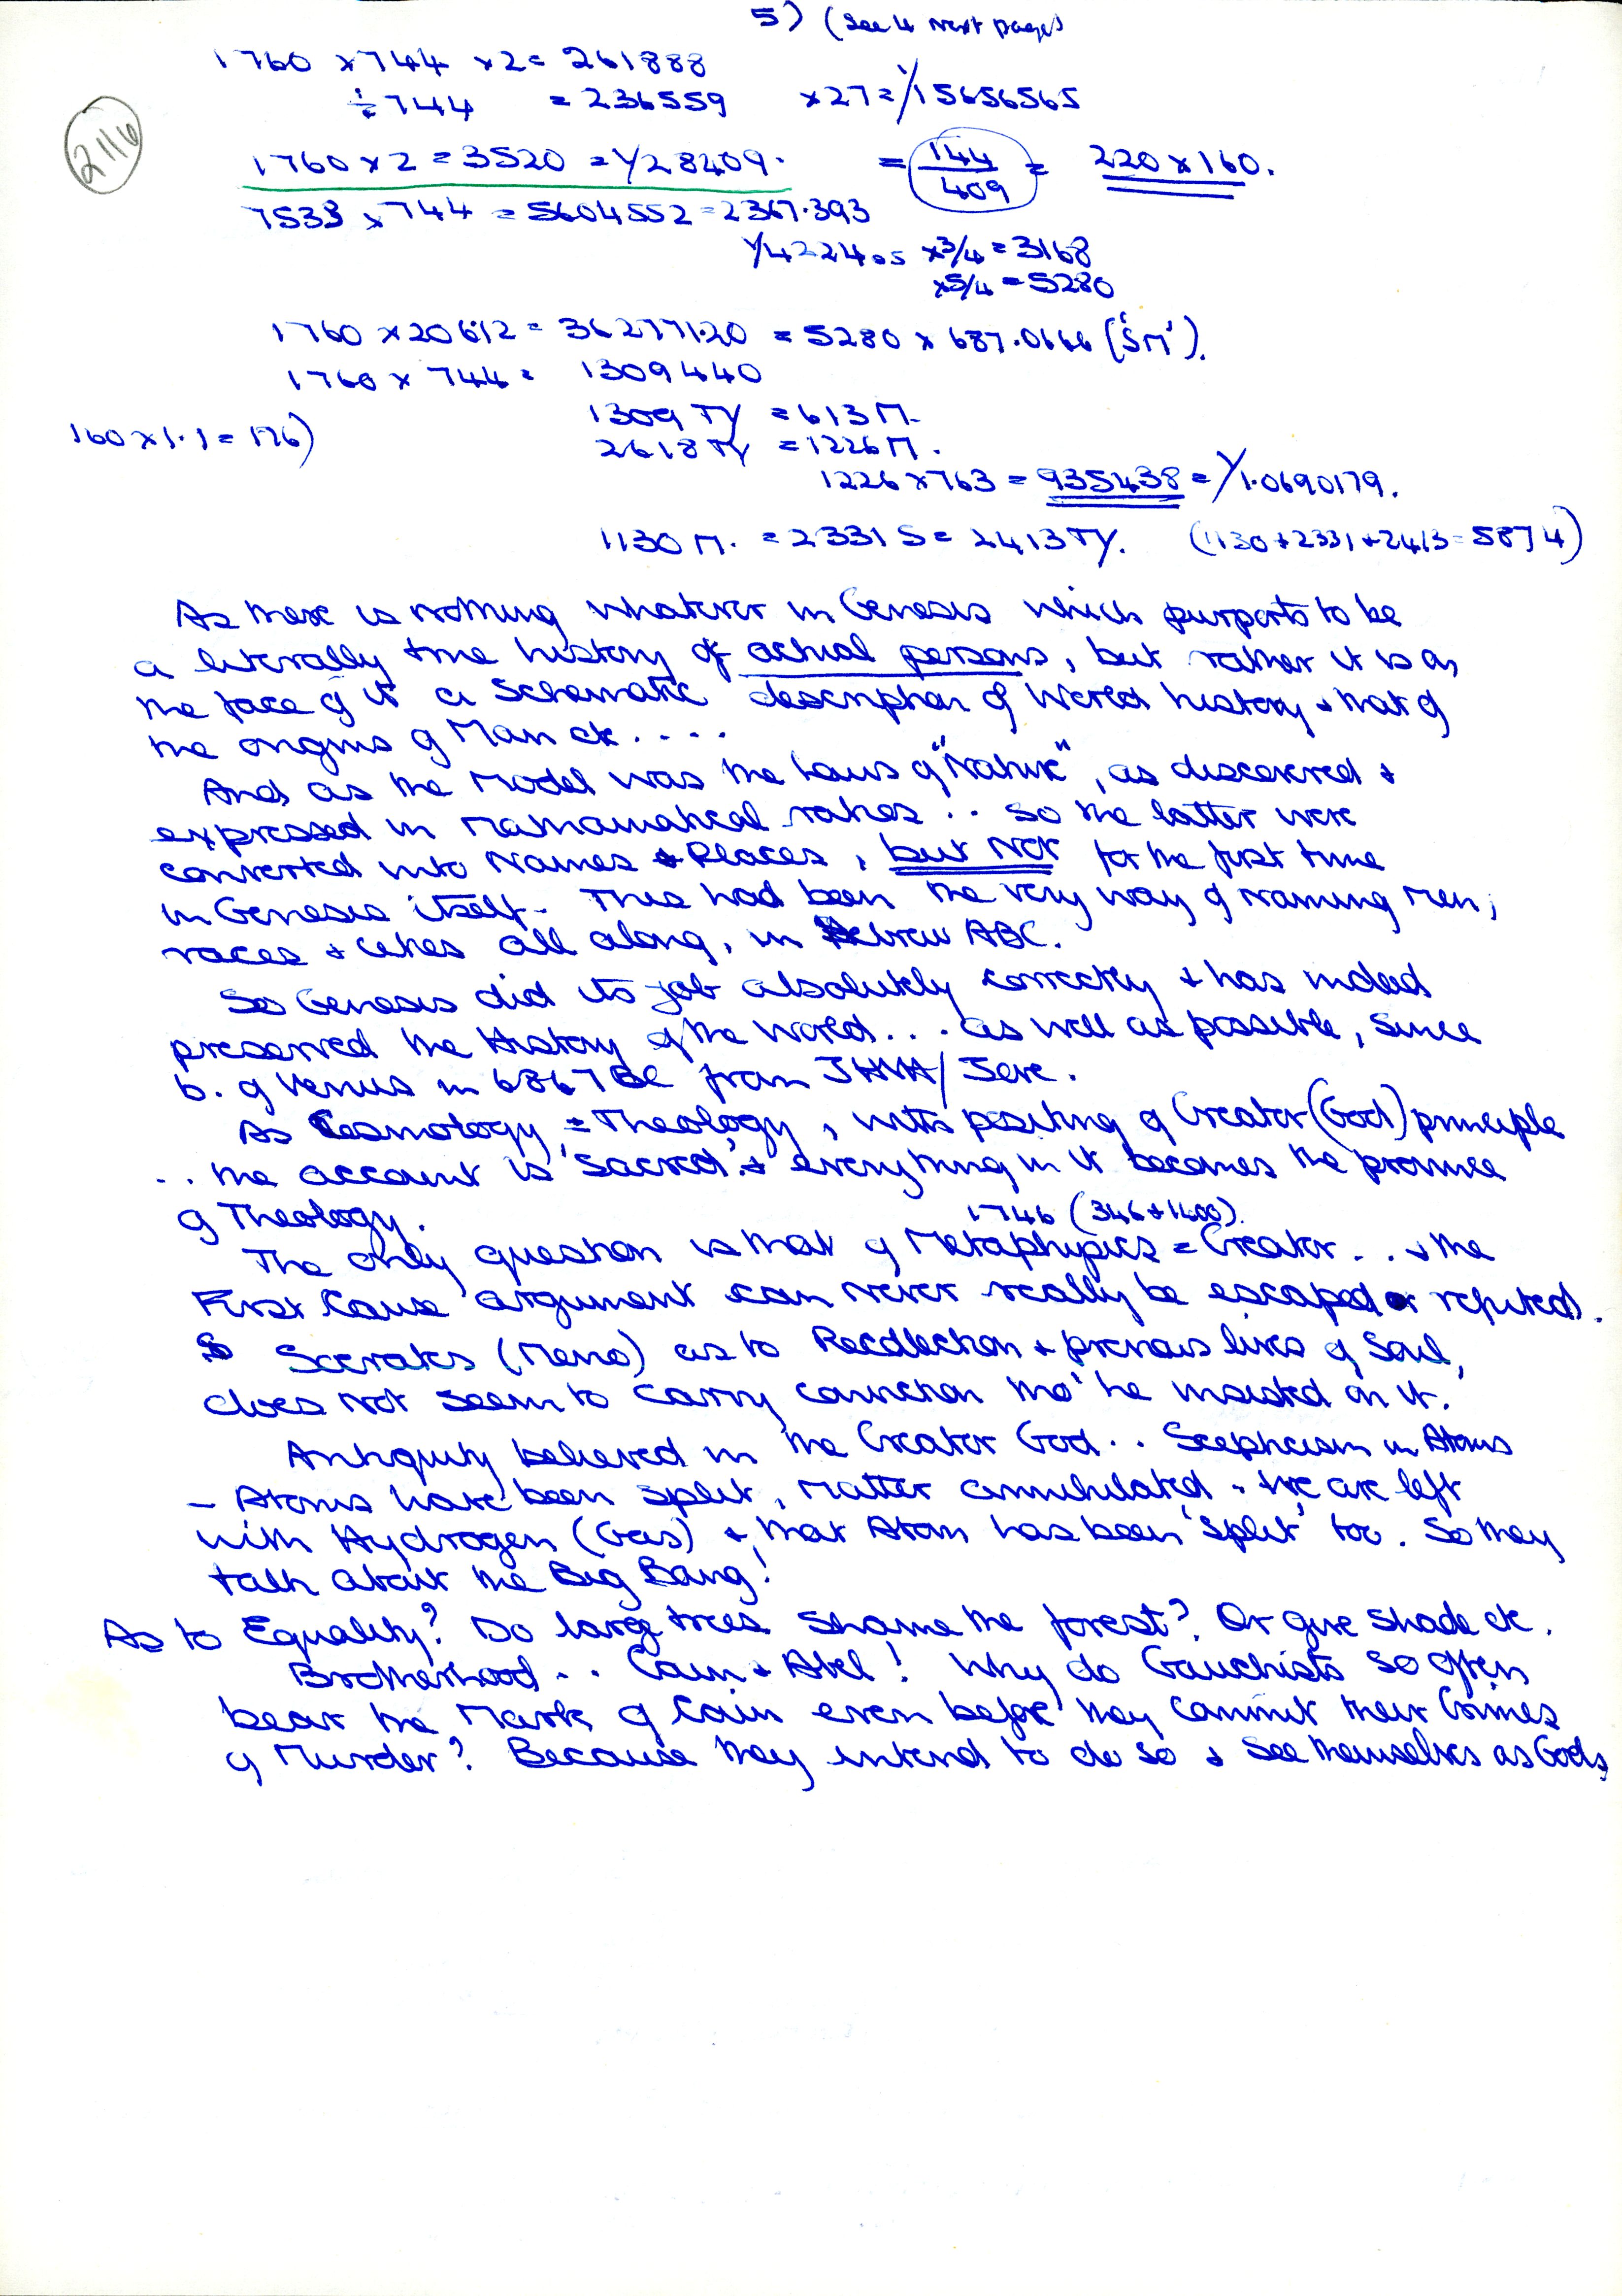 5) (See 4 next page)
1760 x 744 x 2 = 261888
÷ 744 = 236559 x 27 = 1/15656565
2116
1760 x 2 = 3520 = 1/28409. = 144/409 = 220 x 160.
7533 x 744 = 5604552 = 2367.393
1/422405 x 3/4 = 3168
x 5/4 = 5280
1760 x 20612 = 362771.20 = 5280 x 687.0666 ('SΠ').
1760 x 744 = 1309440
1309 TY = 613 Π.
160 x 1.1 = 176)
2618 TY = 1226 Π.
1226 x 763 = 935438 = 1/1.0690179.
1130 Π. = 2331 S = 2413 TY. (1130 + 2331 + 2413 = 5874)
As there is nothing whatever in Genesis which purports to be
a literally true history of actual persons, but rather it is on
the face of it a schematic description of World history + that of
the origins of Man etc. . . . .
And as the Model was the Laws of "Nature", as discovered +
expressed in Mathematical ratios . . so the latter were
converted into Names + Places, but Not for the first time
in Genesis itself - This had been the very way of naming Men,
races + cities all along, in Hebrew ABC.
So Genesis did its job absolutely correctly + has indeed
preserved the History of the World . . . as well as possible, since
b. of Venus in 6867 BC from JHVH / Jove.
As Cosmology = Theology, with positing of Creator (God) principle
. . the account is 'sacred' + everything in it becomes the province
of Theology.
1746 (346 + 1400).
The only question is that of Metaphysics = Creator . . + the
First Cause argument can never really be escaped or refuted.
So Socrates (Meno) as to Recollection + previous lives of Soul,
does not seem to carry conviction tho' he insisted on it.
Antiquity believed in the Creator God . . Scepticism in Atoms
- Atoms have been split, Matter annihilated - We are left
with Hydrogen (Gas) + that Atom has been 'split' too. So they
talk about the Big Bang!
As to Equality? Do large trees shame the forest? Or give shade etc.
Brotherhood . . Cain + Abel! Why do Gauchists so often
bear the Mark of Cain even before they commit their Crimes
of Murder? Because they intend to do so + see themselves as Gods